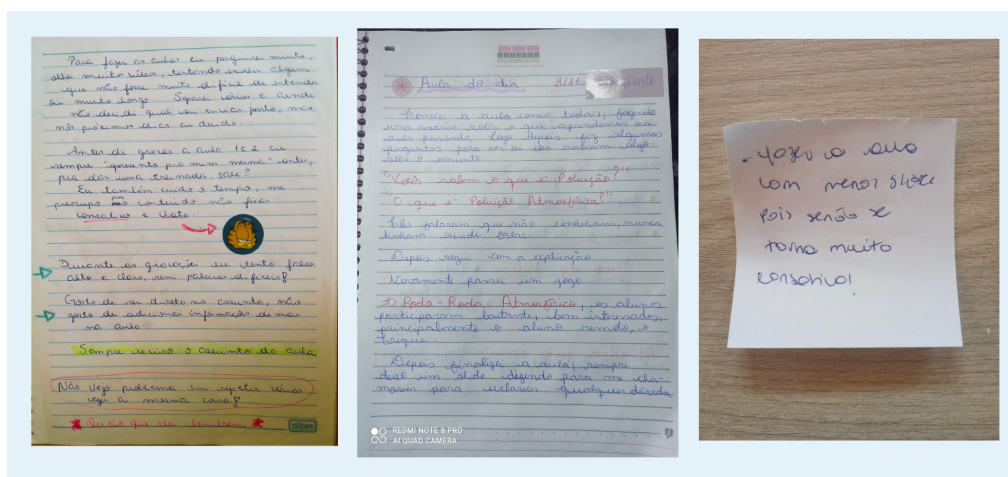 Para fazer as aulas eu pesquisei muito,
olhei muitos vídeos, tentando achar algum
que não fosse muito difícil de entender
ou muito longo. Separei vários e ainda
não decidi qual vou enviar
nos próximos dias eu decido...
Antes de gravar a aula 1 e 2 eu
sempre "apresento pra mim mesma" antes,
pra dar uma treinada, sabe?
Eu também cuido o tempo, me
preocupo no conteúdo não ficar
cansativo e chato.
Durante as gravações eu tento falar
alto e claro, sem palavras difíceis!
Gosto de ser direta no assunto, não
gosto de adicionar informações de mais
na aula.
Sempre reviso o assunto da aula
Não vejo problema em repetir várias
vezes a mesma coisa!
Quero que eles lembrem
tilibra
Aula do dia 8/11
Comecei a aula como todas, fazendo
uma revisão sobre o que aprendemos na
aula passada. Logo depois fiz algumas
perguntas para ver se eles sabiam algo
sobre o assunto.
"Vocês sabem o que é Poluição?"
"O que é Poluição Atmosférica?"
Eles falaram que não conheciam, nunca
tinham ouvido falar.
Depois segui com a explicação
Novamente passei um jogo
Roda-Roda Atmosférico, os alunos
participaram bastante, bem interessados,
principalmente o aluno
Depois finalizei a aula, sempre
deixo um slide dizendo para me cha-
marem para esclarecer qualquer dúvida.
REDMI NOTE 8 PRO
AI QUAD CAMERA
- fazer a aula
com menor slide
pois senão se
torna muito
cansativo!